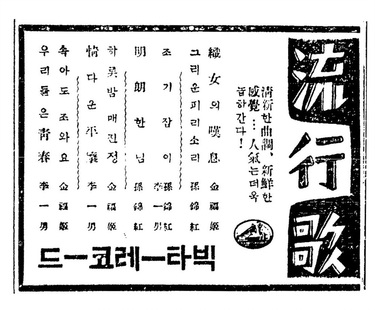 流行歌
淸新한曲調、新鮮한
感覺…人氣는더욱
놉하간다!
織女의嘆息 金福姬
그리운피리소리 孫錦紅
조기잡이 孫錦紅 李一男
明朗한님 孫錦紅
하룻밤매진정 金福姬
情다운 李一男
속아도조와요 金福姬
우리들은靑春 李一男
빅타ー레코ー드